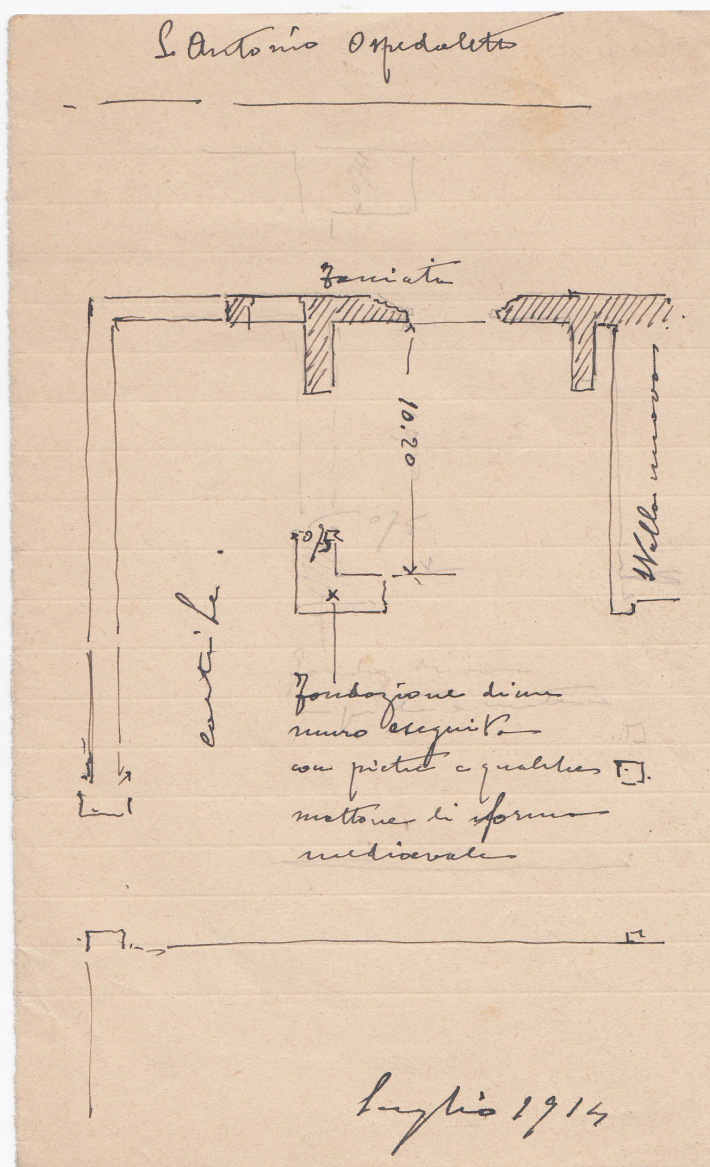 S. Antonio Ospedaletto
Facciata
10.20
0/52
cortile.
Fondazione di un
muro eseguito
con pietre e qualche
mattone di forma
medioevale
Luglio 1914